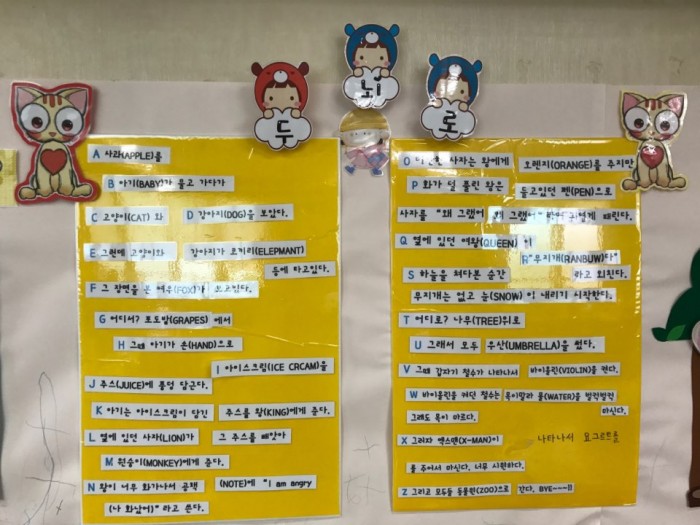 두
뇌
로
A 사과(APPLE)를
B 아기(BABY)가 물고 가다가
C 고양이(CAT) 와 D 강아지(DOG)을 보았다.
E 그런데 고양이와 강아지가 코끼리(ELEPMANT)
등에 타고있다.
F 그 장면을 본 여우(FOX)가 쏘고있다.
G 어디서? 포도밭(GRAPES) 에서
H 그때 아기가 손(HAND)으로
I 아이스크림(ICE CRCAM)을
J 주스(JUICE)에 퐁덩 담근다.
K 아기는 아이스크림이 담긴 주스를 왕(KING)에게 준다.
L 옆에 있던 사자(LION)가 그 주스를 빼앗아
M 원숭이(MONKEY)에게 준다.
N 왕이 너무 화가나서 공책 (NOTE)에 "I am angry
(나 화났어)" 라고 쓴다.
O 사자는 왕에게 오렌지(ORANGE)를 주지만
P 화가 덜 풀린 왕은 들고있던 펜(PEN)으로
사자를 "왜 그랬어 왜 그랬어" 때린다.
Q 옆에 있던 여왕(QUEEN) 이
R "무지개(RANBUW)다"
S 하늘을 쳐다본 순간 라고 외친다.
무지개는 없고 눈(SNOW) 이 내리기 시작한다.
T 어디로? 나무(TREE)위로
U 그래서 모두 우산(UMBRELLA)을 썼다.
V 그때 갑자기 철수가 나타나서 바이올린(VIOLIN)을 켠다.
W 바이올린을 켜던 철수는 목이말라 물(WATER)을 벌컥벌컥
마신다.
그래도 목이 마르다.
X 그러자 엑스맨(X-MAN)이 나타나서 요구르트를
를 주어서 마신다. 너무 시원하다.
Z 그리고 모두들 동물원(ZOO)으로 간다. BYE~~~!!